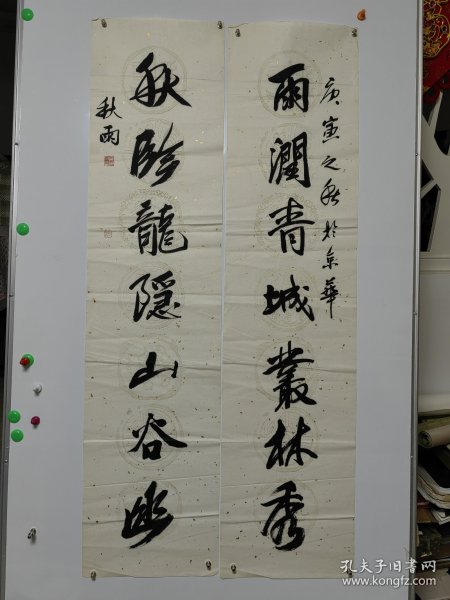 庚寅之秋於京華
雨潤青城叢林秀
秋臨龍隱山谷幽
秋雨
孔夫子旧书网
www.kongfz.com